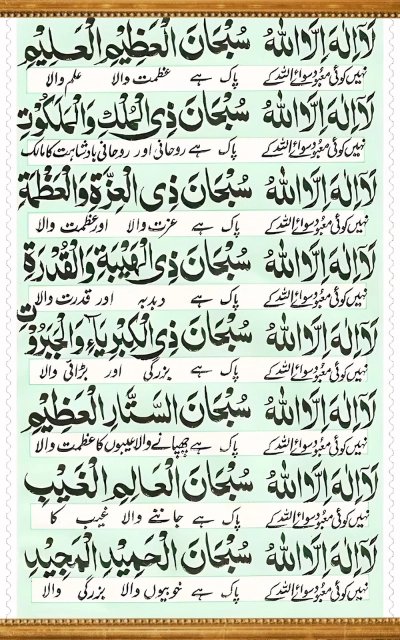 لَآ اِلٰهَ اِلَّا اللهُ سُبْحَانَ الْعَظِيْمِ الْعَلِيْمِ
نہیں کوئی معبود سوائے اللہ کے پاک ہے عظمت والا علم والا
لَآ اِلٰهَ اِلَّا اللهُ سُبْحَانَ ذِى الْمُلْكِ وَالْمَلَكُوْتِ
نہیں کوئی معبود سوائے اللہ کے پاک ہے روحانی اور روحانی بادشاہت کا مالک
لَآ اِلٰهَ اِلَّا اللهُ سُبْحَانَ ذِى الْعِزَّةِ وَالْعَظَمَةِ
نہیں کوئی معبود سوائے اللہ کے پاک ہے عزت والا اور عظمت والا
لَآ اِلٰهَ اِلَّا اللهُ سُبْحَانَ ذِى الْهَيْبَةِ وَالْقُدْرَةِ
نہیں کوئی معبود سوائے اللہ کے پاک ہے دبدبہ اور قدرت والا
لَآ اِلٰهَ اِلَّا اللهُ سُبْحَانَ ذِى الْكِبْرِيَآءِ وَالْجَبَرُوْتِ
نہیں کوئی معبود سوائے اللہ کے پاک ہے بزرگی اور بڑائی والا
لَآ اِلٰهَ اِلَّا اللهُ سُبْحَانَ السَّتَّارِ الْعَظِيْمِ
نہیں کوئی معبود سوائے اللہ کے پاک ہے چھپانے والا عیبوں کا عظمت والا
لَآ اِلٰهَ اِلَّا اللهُ سُبْحَانَ الْعَالِمِ الْغَيْبِ
نہیں کوئی معبود سوائے اللہ کے پاک ہے جاننے والا غیب کا
لَآ اِلٰهَ اِلَّا اللهُ سُبْحَانَ الْحَمِيْدِ الْمَجِيْدِ
نہیں کوئی معبود سوائے اللہ کے پاک ہے خوبیوں والا بزرگی والا